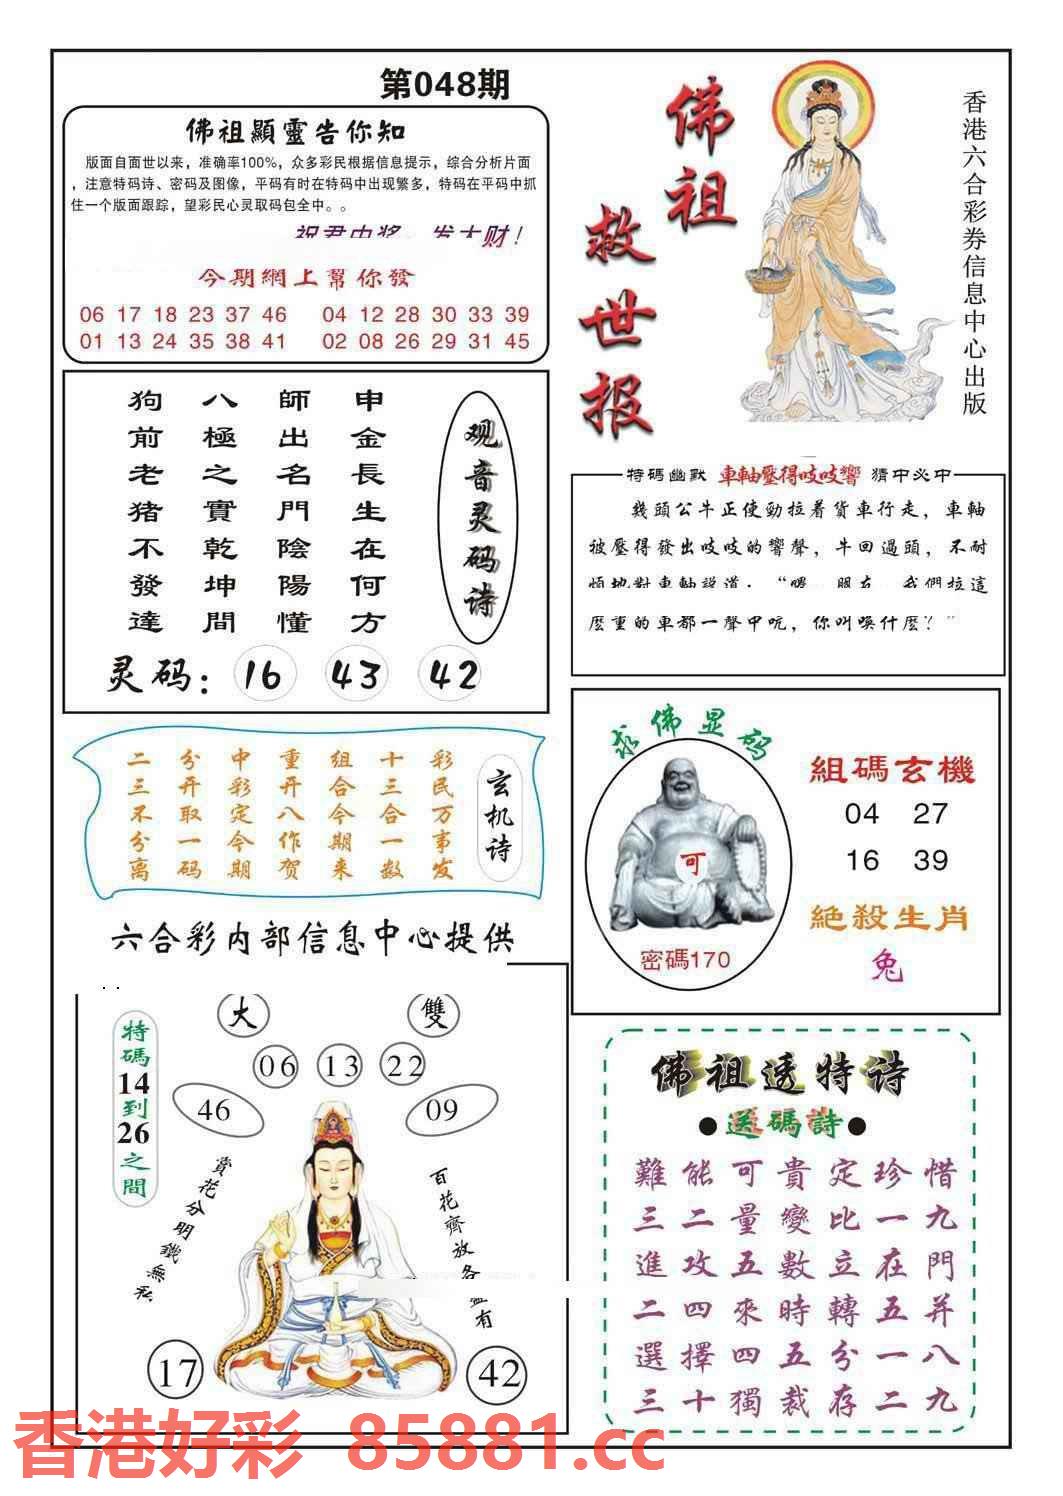 第048期
佛祖顯靈告你知
版面自面世以来，准确率100%，众多彩民根据信息提示，综合分析片面
，注意特码诗、密码及图像，平码有时在特码中出现繁多，特码在平码中抓
住一个版面跟踪，望彩民心灵取码包全中。。
祝君中奖，发大财！
今期網上幫你發
06 17 18 23 37 46 04 12 28 30 33 39
01 13 24 35 38 41 02 08 26 29 31 45
佛祖
救世报
香港六合彩券信息中心出版
观音灵码诗
申金長生在何方
師出名門陰陽懂
八極之實乾坤間
狗前老猪不發達
灵码：16 43 42
特碼幽默 車軸壓得吱吱響 猜中必中
幾頭公牛正使勁拉着貨車行走，車軸
被壓得發出吱吱的響聲，牛回過頭，不耐
煩地對車軸說道：“喂 朋友 我們拉這
麽重的車都一聲甲吭，你叫喚什麽？”
玄机诗
彩民万事发
十三合一数
组合今期来
重开八作贺
中彩定今期
分开取一码
二三不分离
求佛显码
可
密碼170
組碼玄機
04 27
16 39
絕殺生肖
兔
六合彩内部信息中心提供
大 雙
06 13 22
46 09
特碼14到26之間
賞花分明鐵無私
百花齊放各 有
17 42
佛祖透特诗
●送碼詩●
難能可貴定珍惜
三二量變比一九
進攻五數立在門
二四來時轉五并
選擇四五分一八
三十獨裁存二九
香港好彩 85881.cc